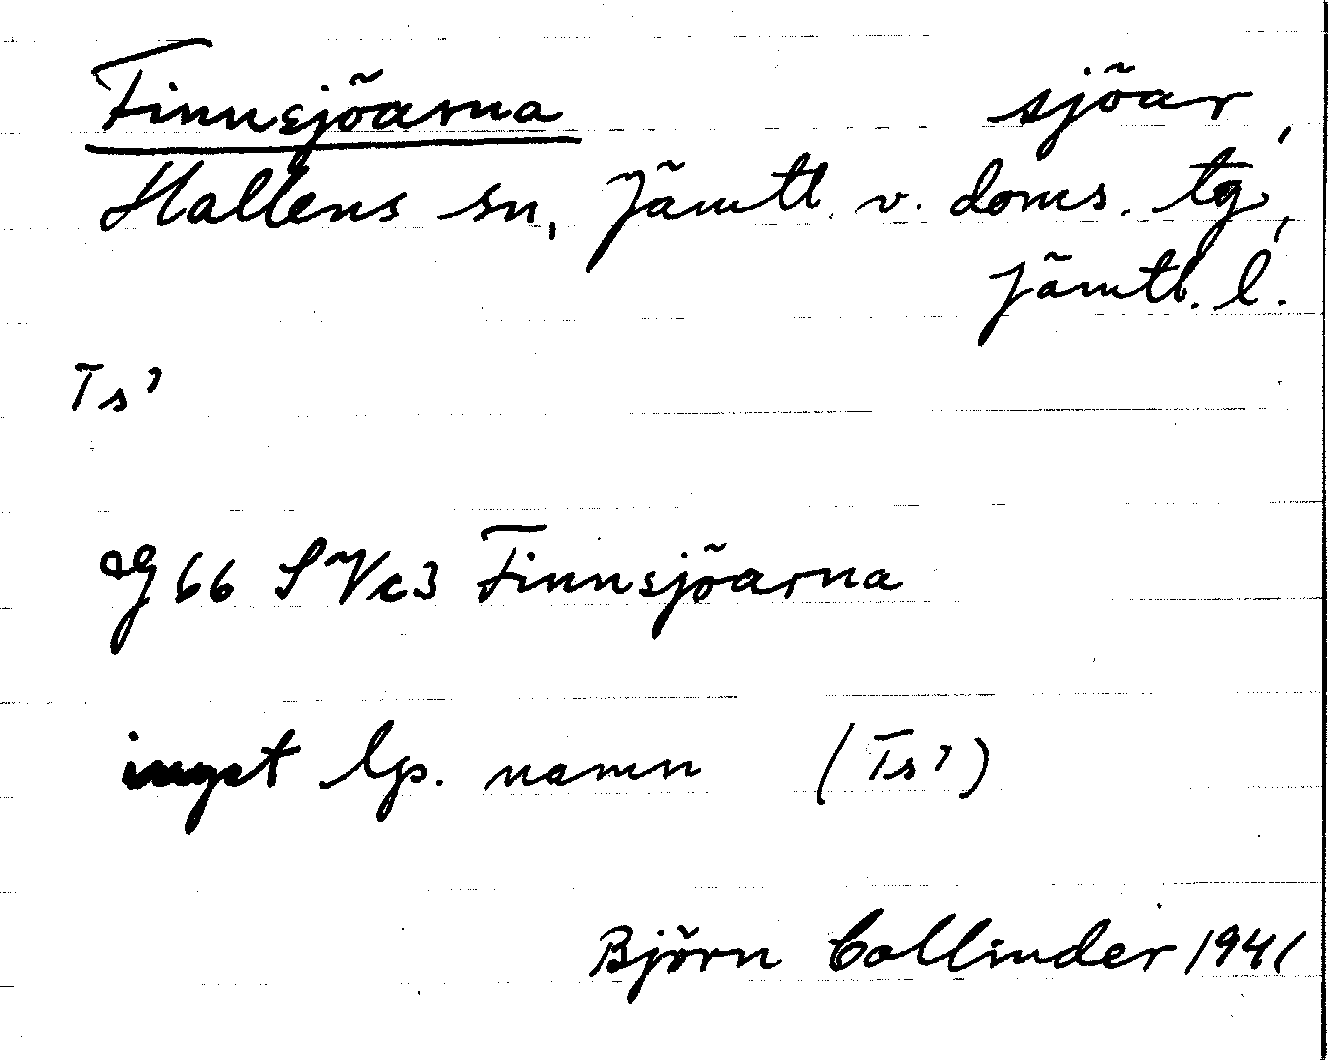 Finnsjöarna sjöar,
Hallens sn, Jämtl. v. doms. tg,
Jämtl. l.
Ts¹
G 66 SVc3 Finnsjöarna
inget lp. namn (Ts¹)
Björn Collinder 1941